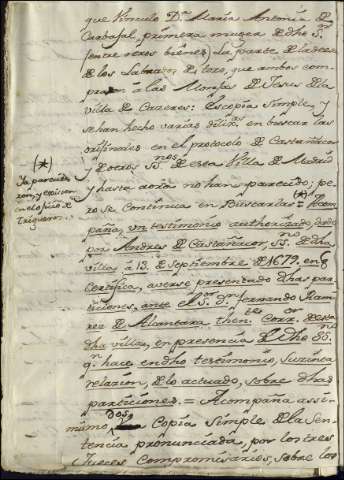 que Vinculo Dª Maria Antonia de
Carbajal, primera muger de dho S.
(entre otros bienes) la parte de la de
de los Labrados de lexo, que ambos com
praron á las Monjas de Jesus de la
villa de Caceres: Es copia simple, y
se han hecho varias diligª en buscar las
originales en el protocolo de Castañaca
y de otros SSnos de esta Villa de Madrid
y hasta aora no han parecido; pe
ro se continua en Buscarlas = (*) Acom
paña, un testimonio authorizado, dado
por Andres de Castañacor, SSno de dha
villa, á 13 de Septiembre de 1679, en q
certifica, averse presentado dhas par
ticiones, ante el Sor Dn fernando Rami
rez de Alcantara then.te Corr.or de esta
dha villa, en presencia de dho SSno
q. hace en dho testimonio, sucinta
relacion, de lo actuado, sobre dhas
particiones. = Acompaña assi
mismo, Dos Copia simple de la Sen
tencia pronunciada, por los tres
Jueces Compromisarios, sobre los
(*)
Ya parecie
ron, y existen
en el oficio de
Trigueros